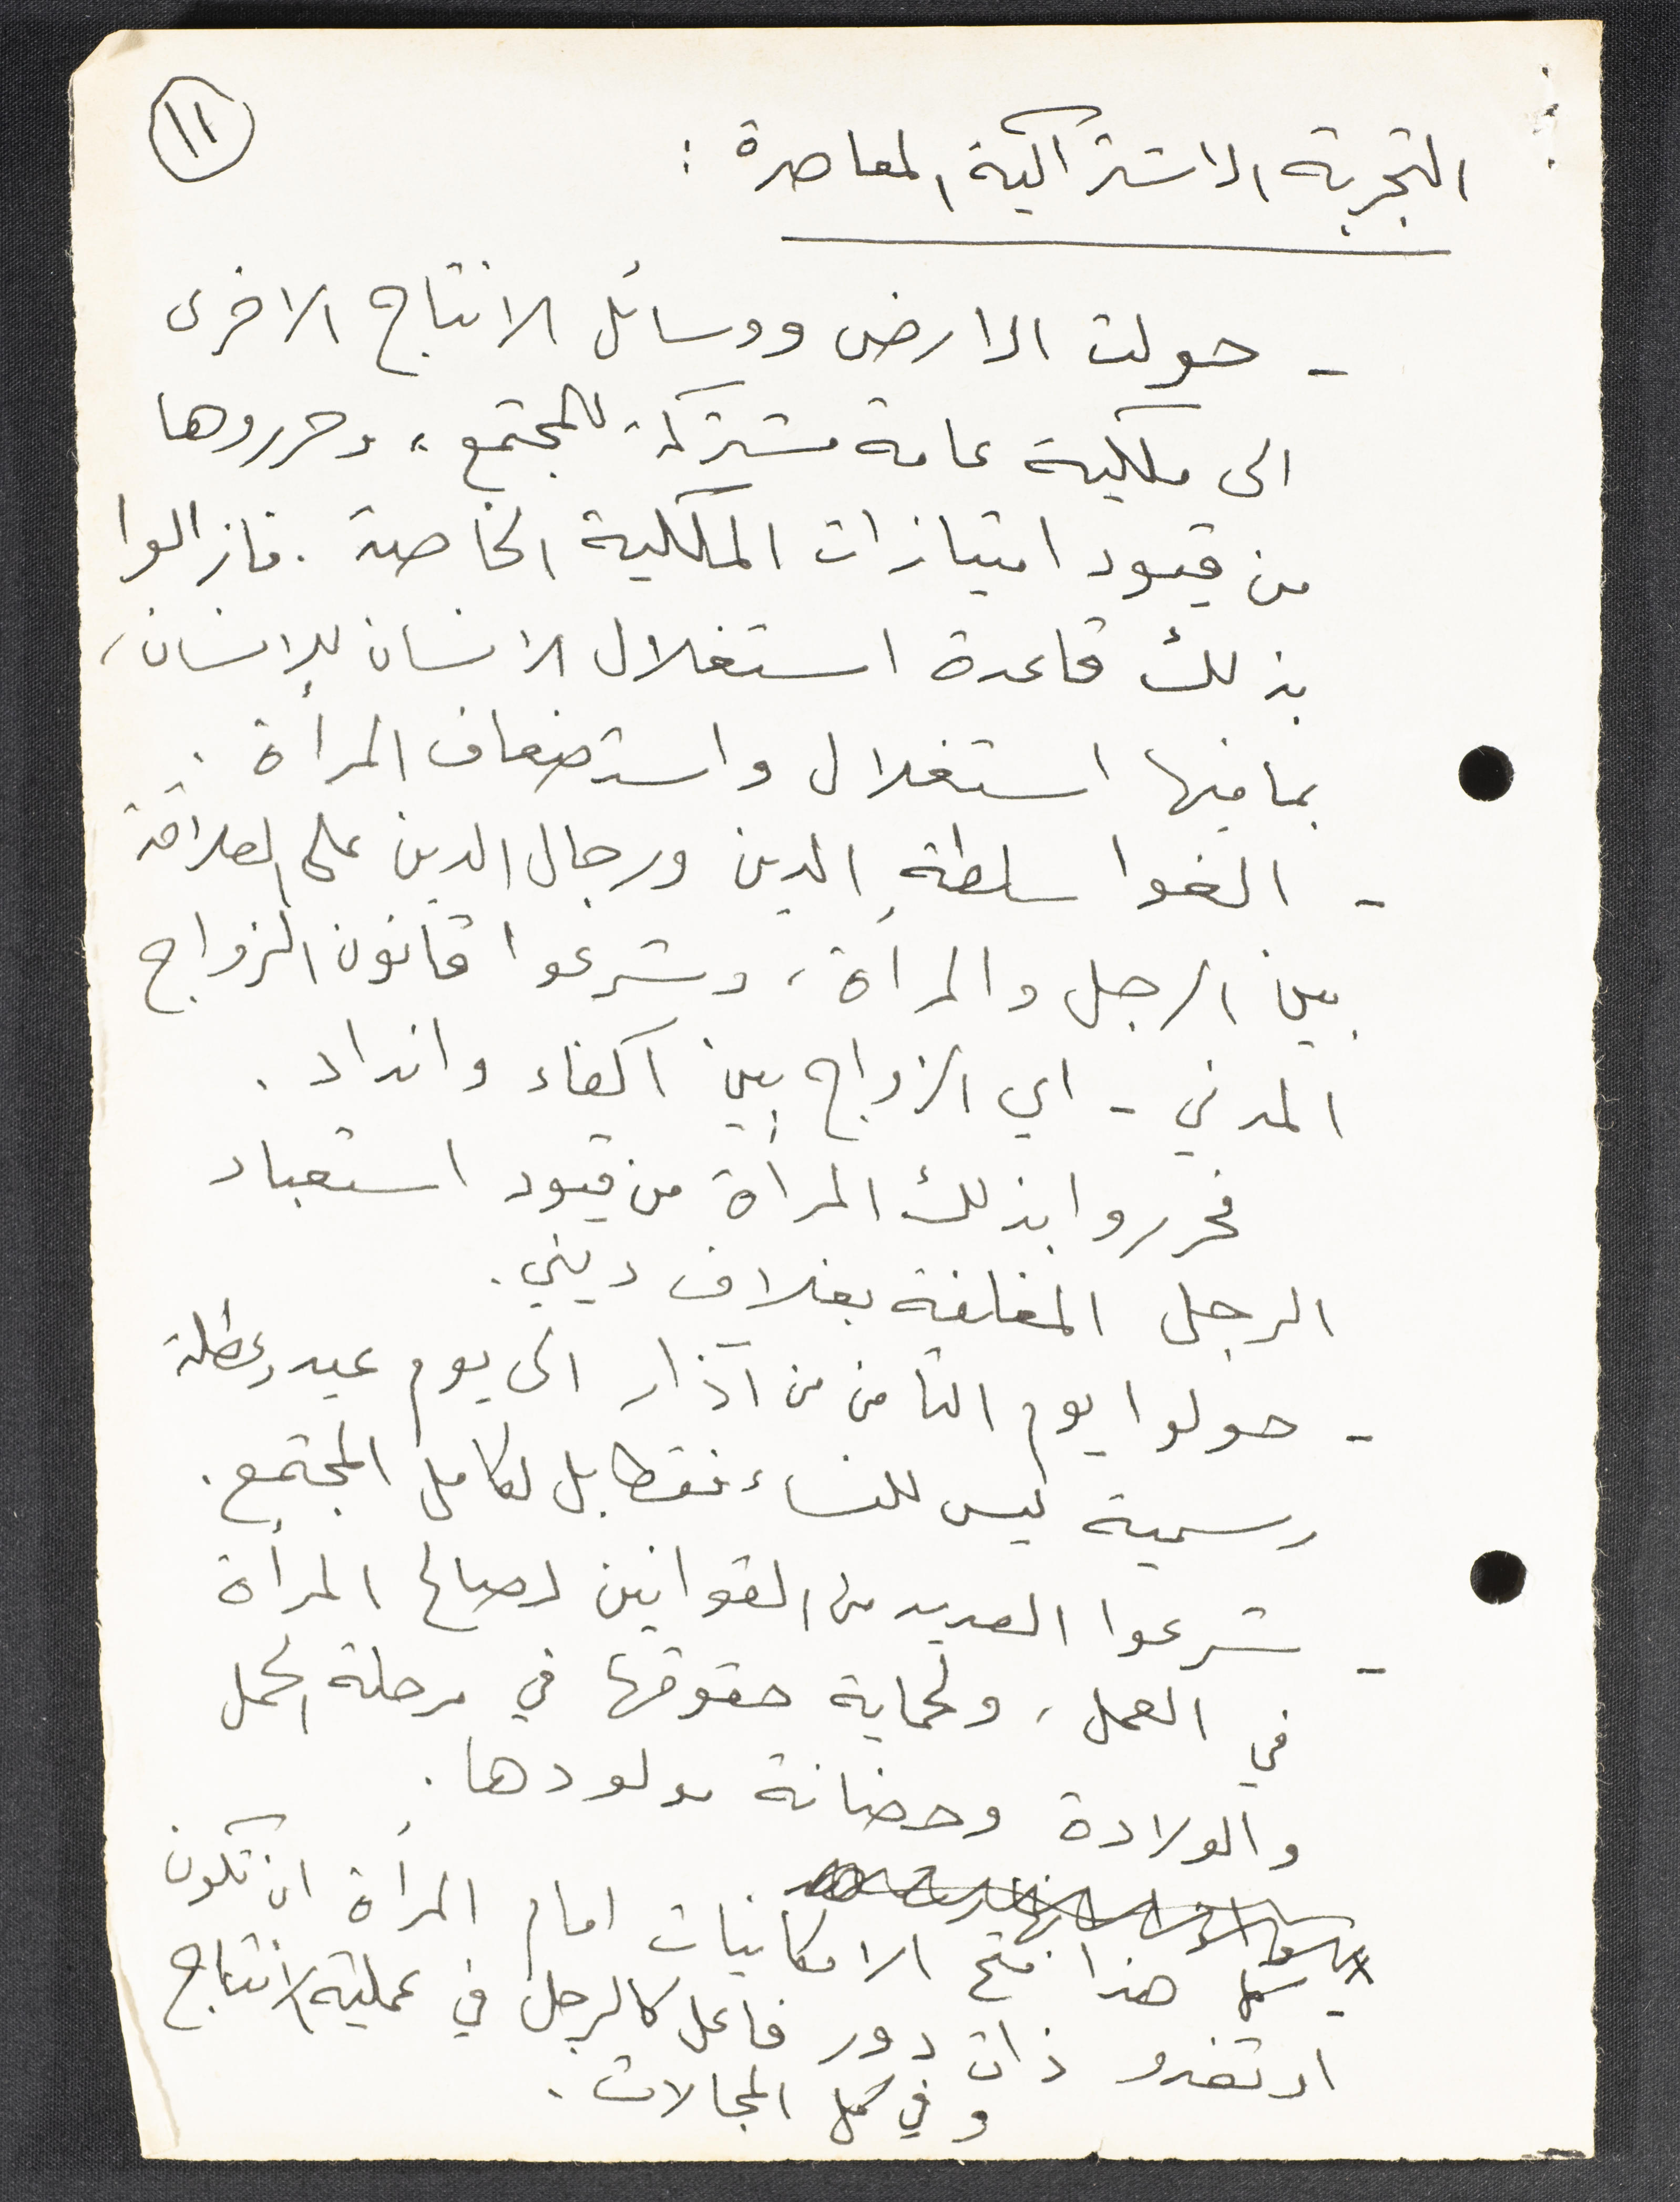 ١١
التجربة الاشتراكية المعاصرة :
- حولت الارض ووسائل الانتاج الاخرى
الى ملكية عامة مشتركة للمجتمع ، وحرروها
من قيود امتيازات الملكية الخاصة . فازالوا
بذلك قاعدة استغلال الانسان للإنسان ،
بما فيها استغلال واستضعاف المرأة .
- الغوا سلطة الدين ورجال الدين على العلاقة
بين الرجل والمرأة ، وشرعوا قانون الزواج
المدني - اي الزواج بين اكفاء وانداد .
فحرروا بذلك المرأة من قيود استعباد
الرجل المغلفة بغلاف ديني .
- حولوا يوم الثامن من آذار الى يوم عيد وعطلة
رسمية ليس للنساء فقط بل لكامل المجتمع .
- شرعوا العديد من القوانين لصالح المرأة
في العمل ، ولحماية حقوقها في مرحلة الحمل
والولادة وحضانة مولودها .
- كل هذا فتح الامكانيات امام المرأة ان تكون
او تغدو ذات دور فاعل كالرجل في عملية الانتاج
وفي كل المجالات .